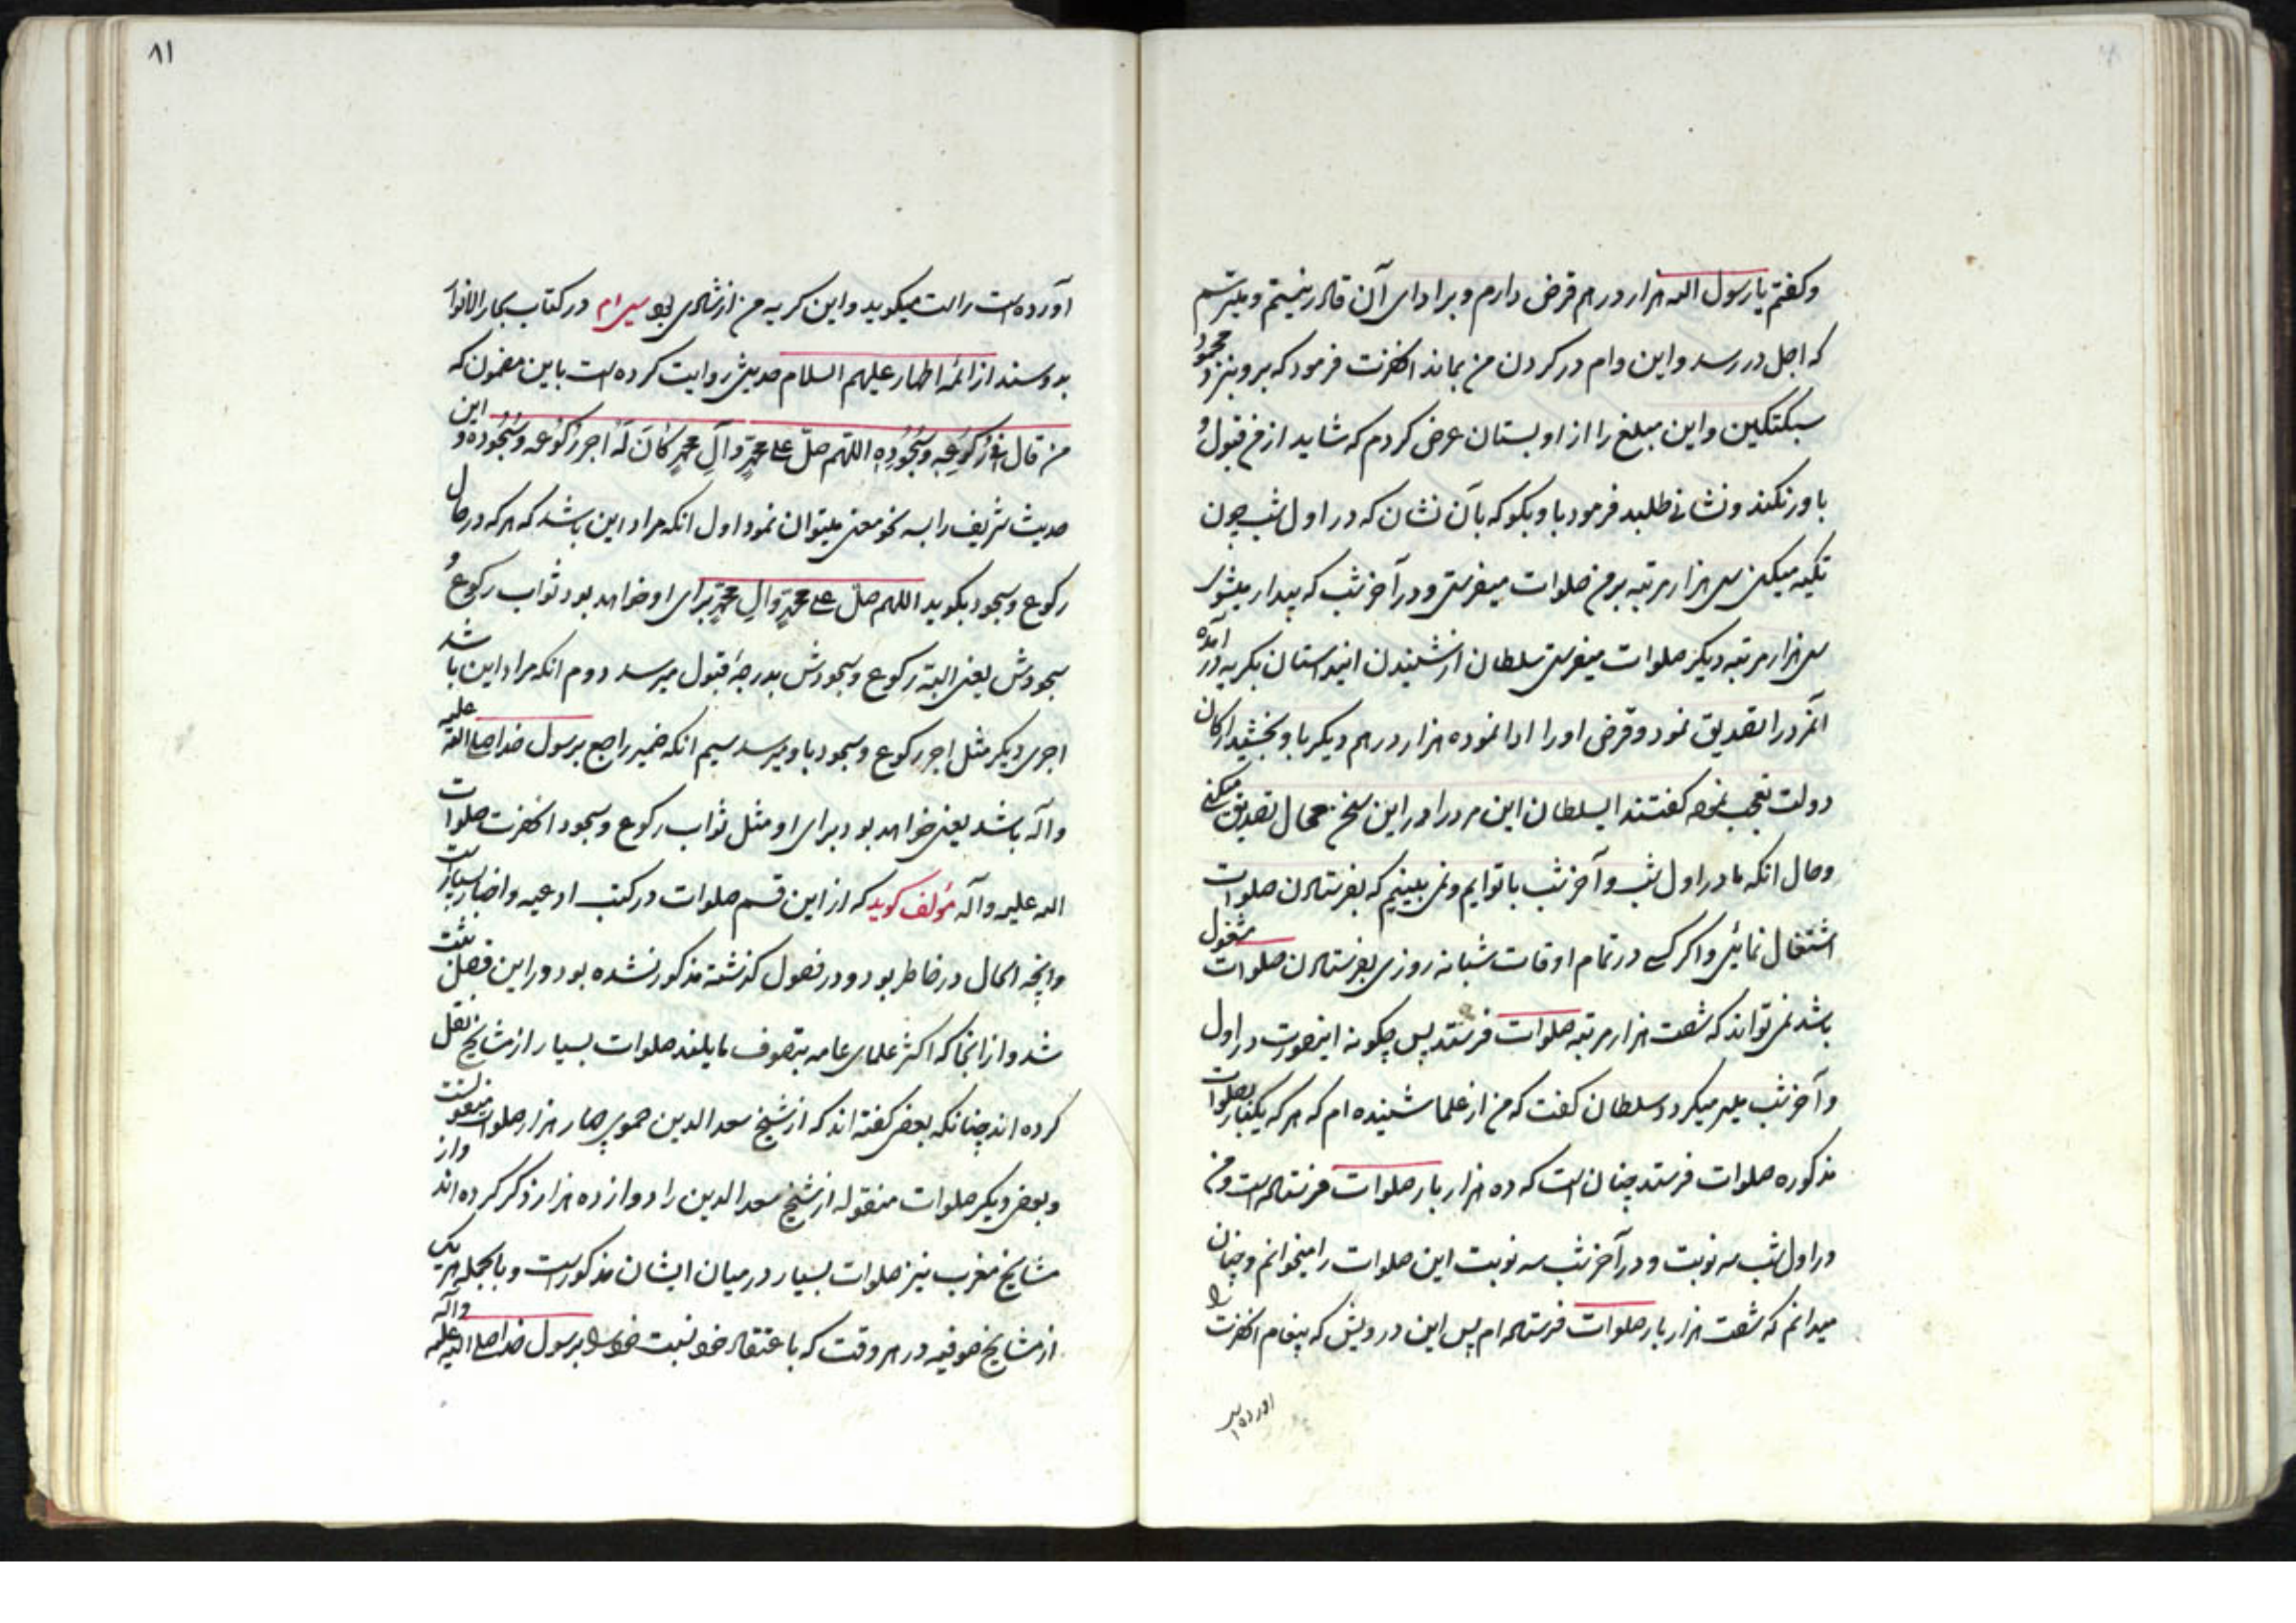 وکفتم یا رسول الله هزار درهم قرض دارم و برادای آن قادر نیستم و میترسم
که اجل در رسد و این وام در کردن من بماند انحضرت فرمود که برو بنزد محمود
سبکتکین و این مبلغ را از او بستان عرض کردم که شاید از من قبول و
باور نکند و نشانی طلبد فرمود با و بکو که بآن نشان که در اول شب چون
تکیه میکنی سی هزار مرتبه بر من صلوات میفرستی و در آخر شب که بیدار میشوی
سی هزار مرتبه دیکر صلوات میفرستی سلطان از شنیدن اینداستان بکریه در آمده
آنمرد را تصدیق نمود و قرض او را ادا نموده هزار درهم دیکر با و بخشید ارکان
دولت تعجب نموده کفتند ایسلطان این مرد را در این سخن محال تصدیق میکنی
و حال انکه ما در اول شب و آخر شب با توایم و نمی بینیم که بفرستادن صلوات
اشتغال نمائی و اکر کسی در تمام اوقات شبانه روزی بفرستادن صلوات مشغول
باشد نمی تواند که شصت هزار مرتبه صلوات فرستد پس چکونه اینصورت در اول
و آخر شب میسر میکردد سلطان کفت که من از علما شنیده ام که هر که یکبار بصلوات
مذکوره صلوات فرستد چنان است که ده هزار بار صلوات فرستاده است و من
در اول شب سه نوبت و در آخر شب سه نوبت این صلوات را میخوانم و چنان
میدانم که شصت هزار بار صلوات فرستاده ام پس این درویش که پیغام انحضرت را
اورده است
۸۱
آورده است راست میکوید و این کریه من از شادی بود سی ام در کتاب بحار الانوار
بدو سند از ائمه اطهار علیهم السلام حدیثی روایت کرده است باین مضمون که
من قال فی رُکُوعِه وسُجُودِه اللّهم صلّ علی محمدٍ وآلِ محمدٍ کَانَ لَهُ اجر رُکُوعه وسُجُوده و این
حدیث شریف را بسه نحو معنی میتوان نمود اول انکه مراد این باشد که هر که در حال
رکوع و سجود بکوید اللهم صلّ علی محمدٍ والِ محمدٍ برای او خواهد بود ثواب رکوع و
سجودش یعنی البته رکوع و سجودش بدرجۀ قبول میرسد دوم انکه مراد این باشد
اجری دیکر مثل اجر رکوع و سجود با و میرسد سیم انکه ضمیر راجع برسول خدا صلی الله علیه
و آله باشد یعنی خواهد بود برای او مثل ثواب رکوع و سجود انحضرت صلوات
الله علیه و آله مؤلف کوید که از این قسم صلوات در کتب ادعیه و اخبار بسیار است
و انچه الحال در خاطر بود و در فصول کذشته مذکور نشده بود در این فصل ثبت
شد و از انجا که اکثر علمای عامه بتصوف مایلند صلوات بسیار از مشایخ نقل
کرده اند چنانکه بعضی کفته اند که از شیخ سعد الدین حموی چهار هزار صلوات منقولست
و بعض دیکر صلوات منقوله از شیخ سعد الدین را دوازده هزار ذکر کرده اند و از
مشایخ مغرب نیز صلوات بسیار در میان ایشان مذکور است و بالجمله هر یک
از مشایخ صوفیه در هر وقت که باعتقاد خود نسبت خود را برسول خدا صلی الله علیه و آله